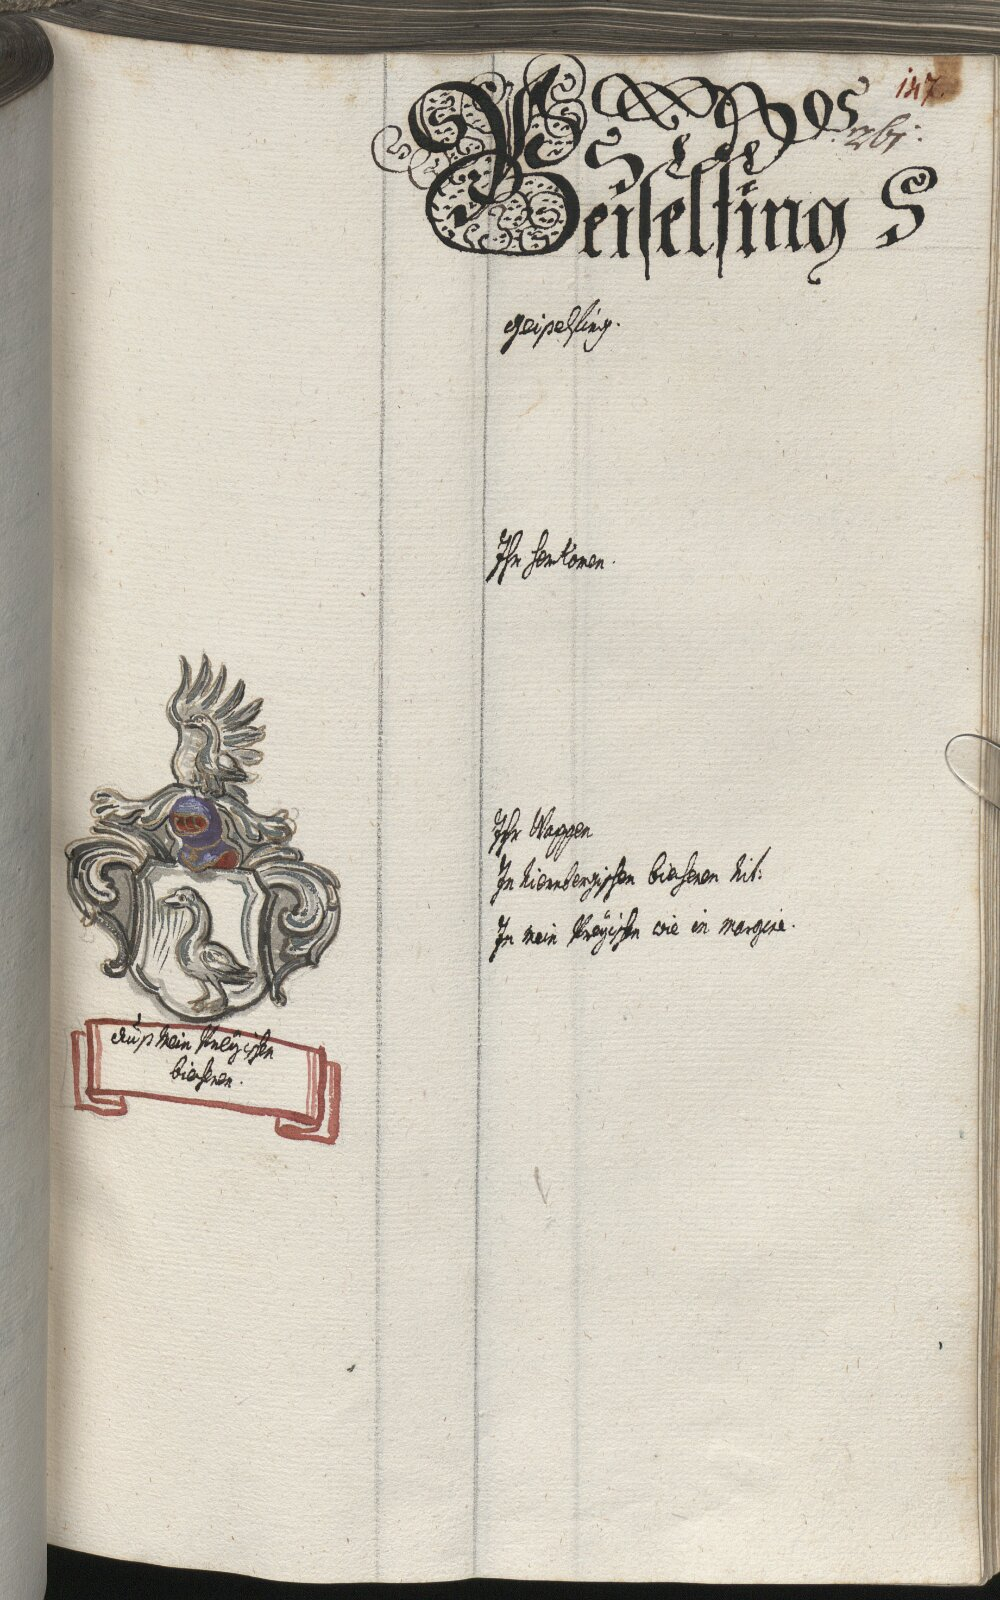 147.
261.
Geiselsing S
geiselsing.
Ihr herkomen.
Ihr Wappen
In Niernbergischen biecheren nit:
In mein Preÿischen wie in margine.
Auß mein Preÿischen
biecheren.